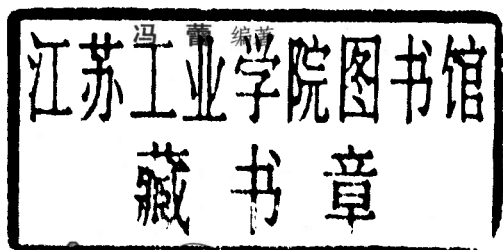 冯 蕾 编著
江苏工业学院图书馆
藏书章